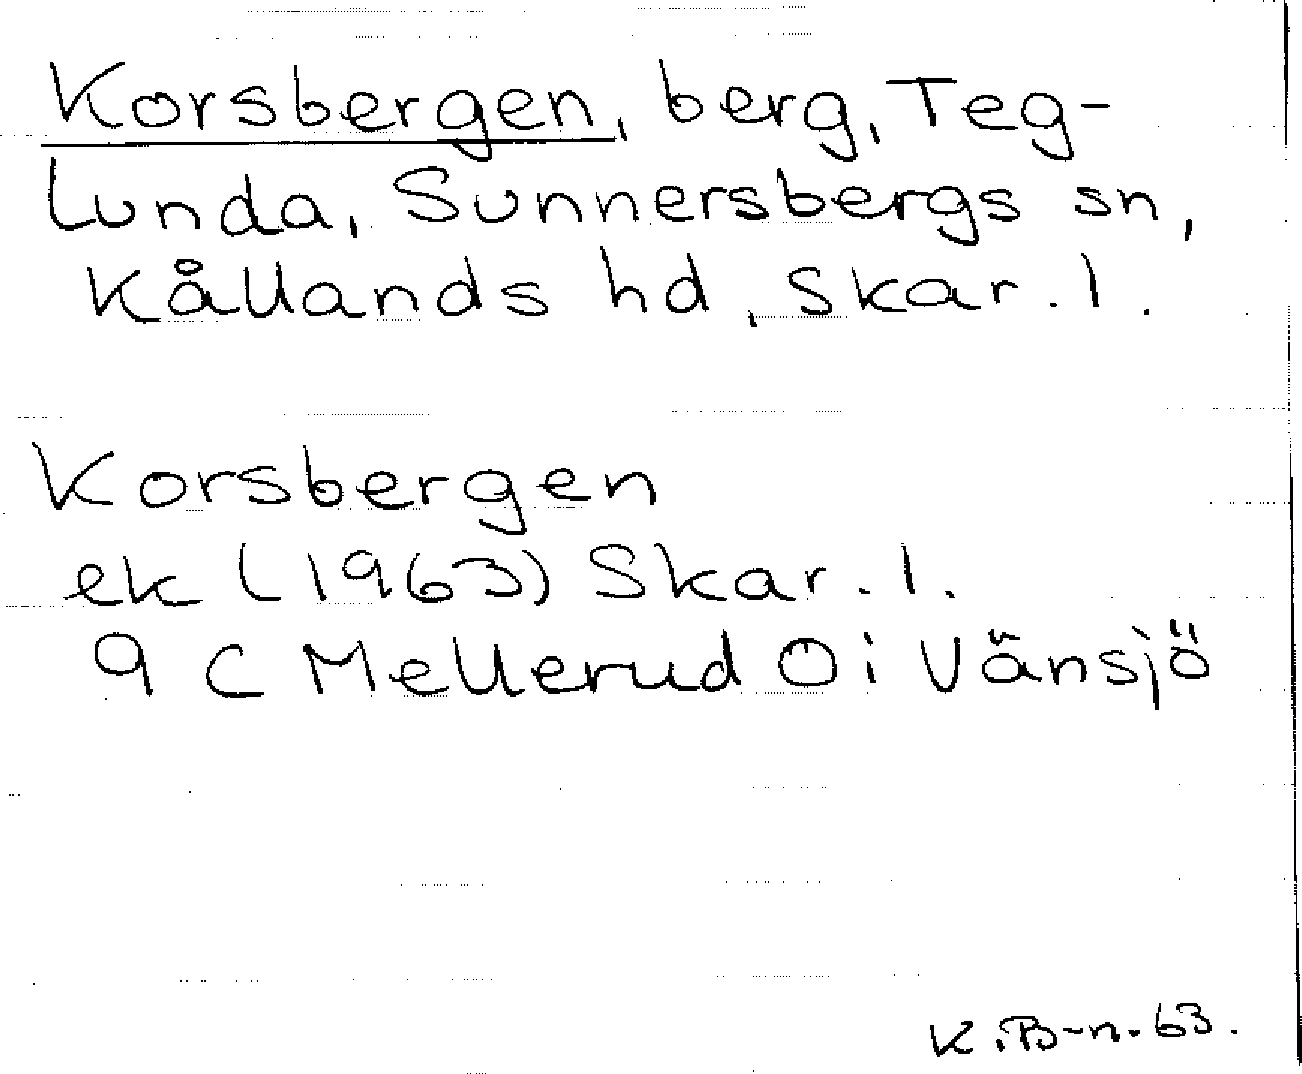 Korsbergen, berg, Teg-
lunda, Sunnersbergs sn,
Kållands hd, Skar. l.
Korsbergen
ek (1963) Skar. l.
9 C Mellerud Ö i Vänsjö
K.B-n. 63.